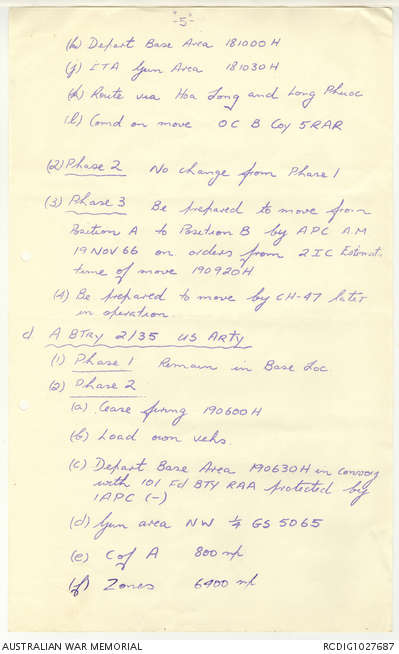 -5-
(h) Depart Base Area 181000H
(j) ETA Gun Area 181030H
(k) Route via Hoa Long and Long Phuoc
(l) Comd on move OC B Coy 5RAR
(2) Phase 2 No change from Phase 1
(3) Phase 3 Be prepared to move from
Position A to Position B by APC A.M
19 NOV 66 on orders from 2IC Estimate
time of move 190920H
(4) Be prepared to move by CH-47 later
in operation.
d. A BTRY 2/35 US ARTY
(1) Phase 1 Remain in Base Loc
(2) Phase 2
(a) Cease firing 190600H
(b) Load own vehs.
(c) Depart Base Area 190630H in convoy
with 101 Fd BTY RAA protected by
1APC (-)
(d) Gun area NW ¼ GS 5065
(e) C of A 800 mp
(f) Zones 6400 mp
AUSTRALIAN WAR MEMORIAL
RCDIG1027687